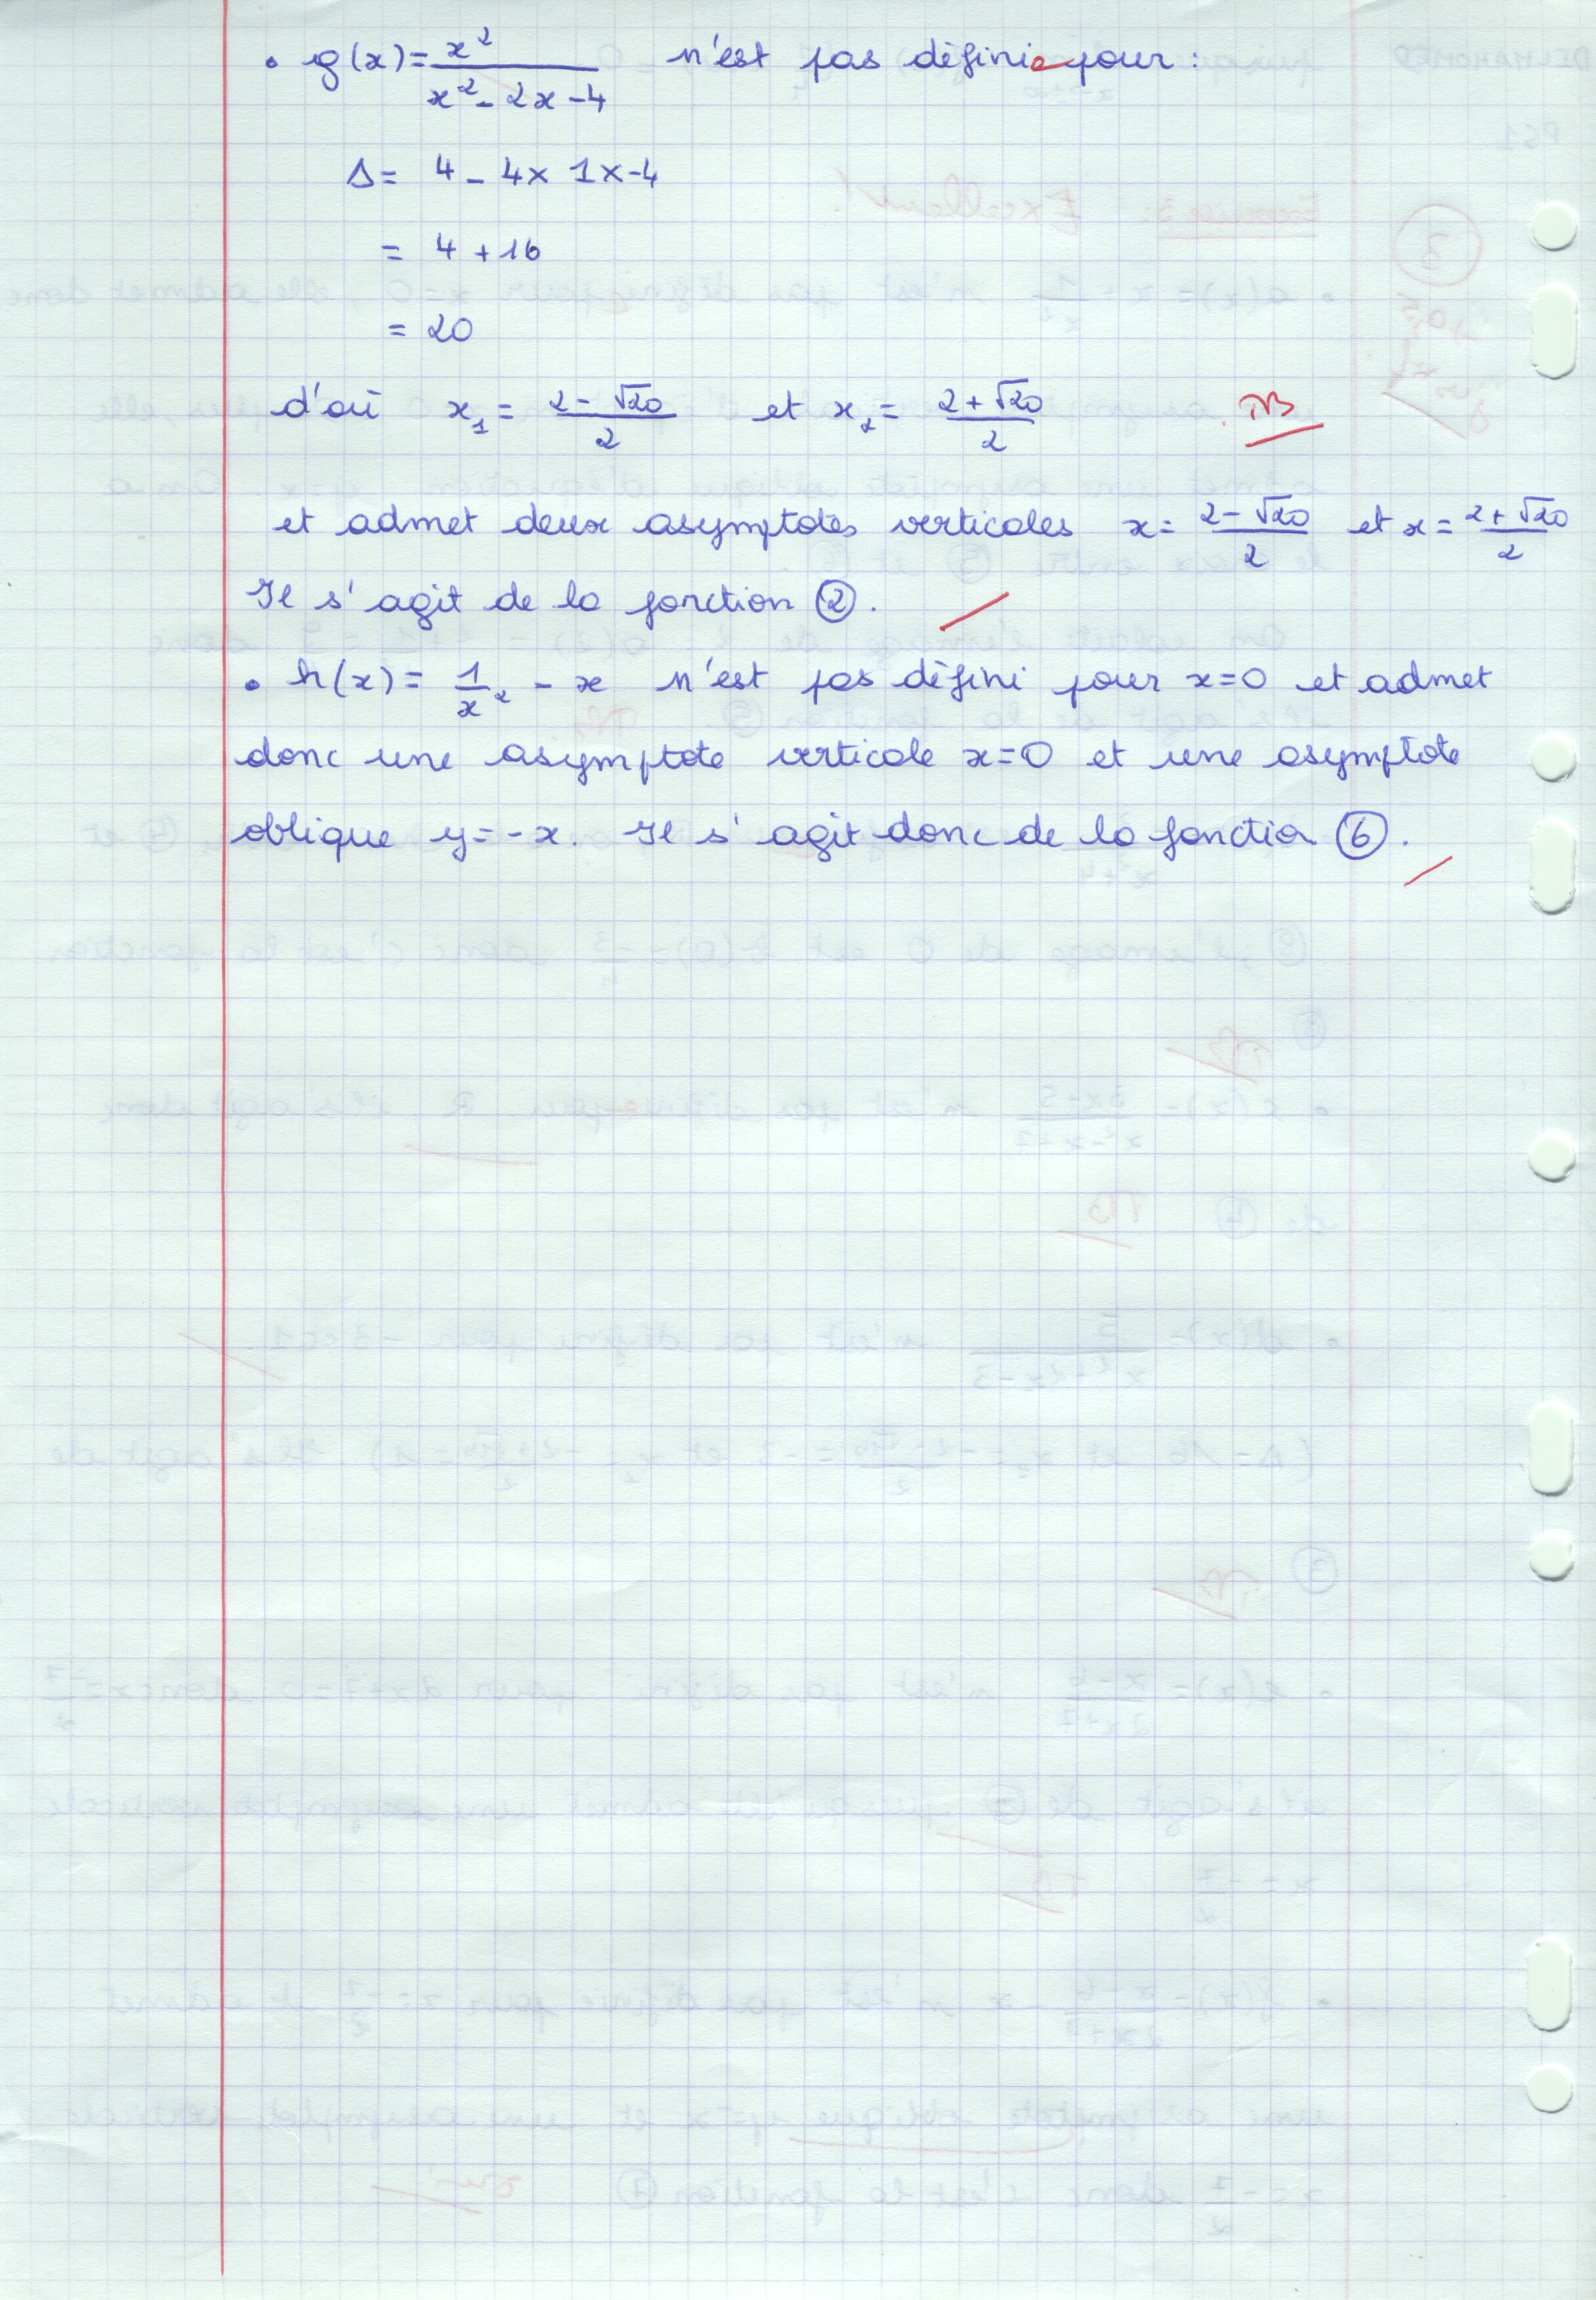 • g(x) = x² / (x² - 2x - 4) n'est pas définie pour :
Δ = 4 - 4 x 1 x -4
= 4 + 16
= 20
d'où x₁ = (2 - √20) / 2 et x₂ = (2 + √20) / 2 TB
et admet deux asymptotes verticales x = (2 - √20) / 2 et x = (2 + √20) / 2
Il s'agit de la fonction ②.
• h(x) = 1/x² - x n'est pas défini pour x=0 et admet
donc une asymptote verticale x=0 et une asymptote
oblique y = -x. Il s'agit donc de la fonction ⑥.